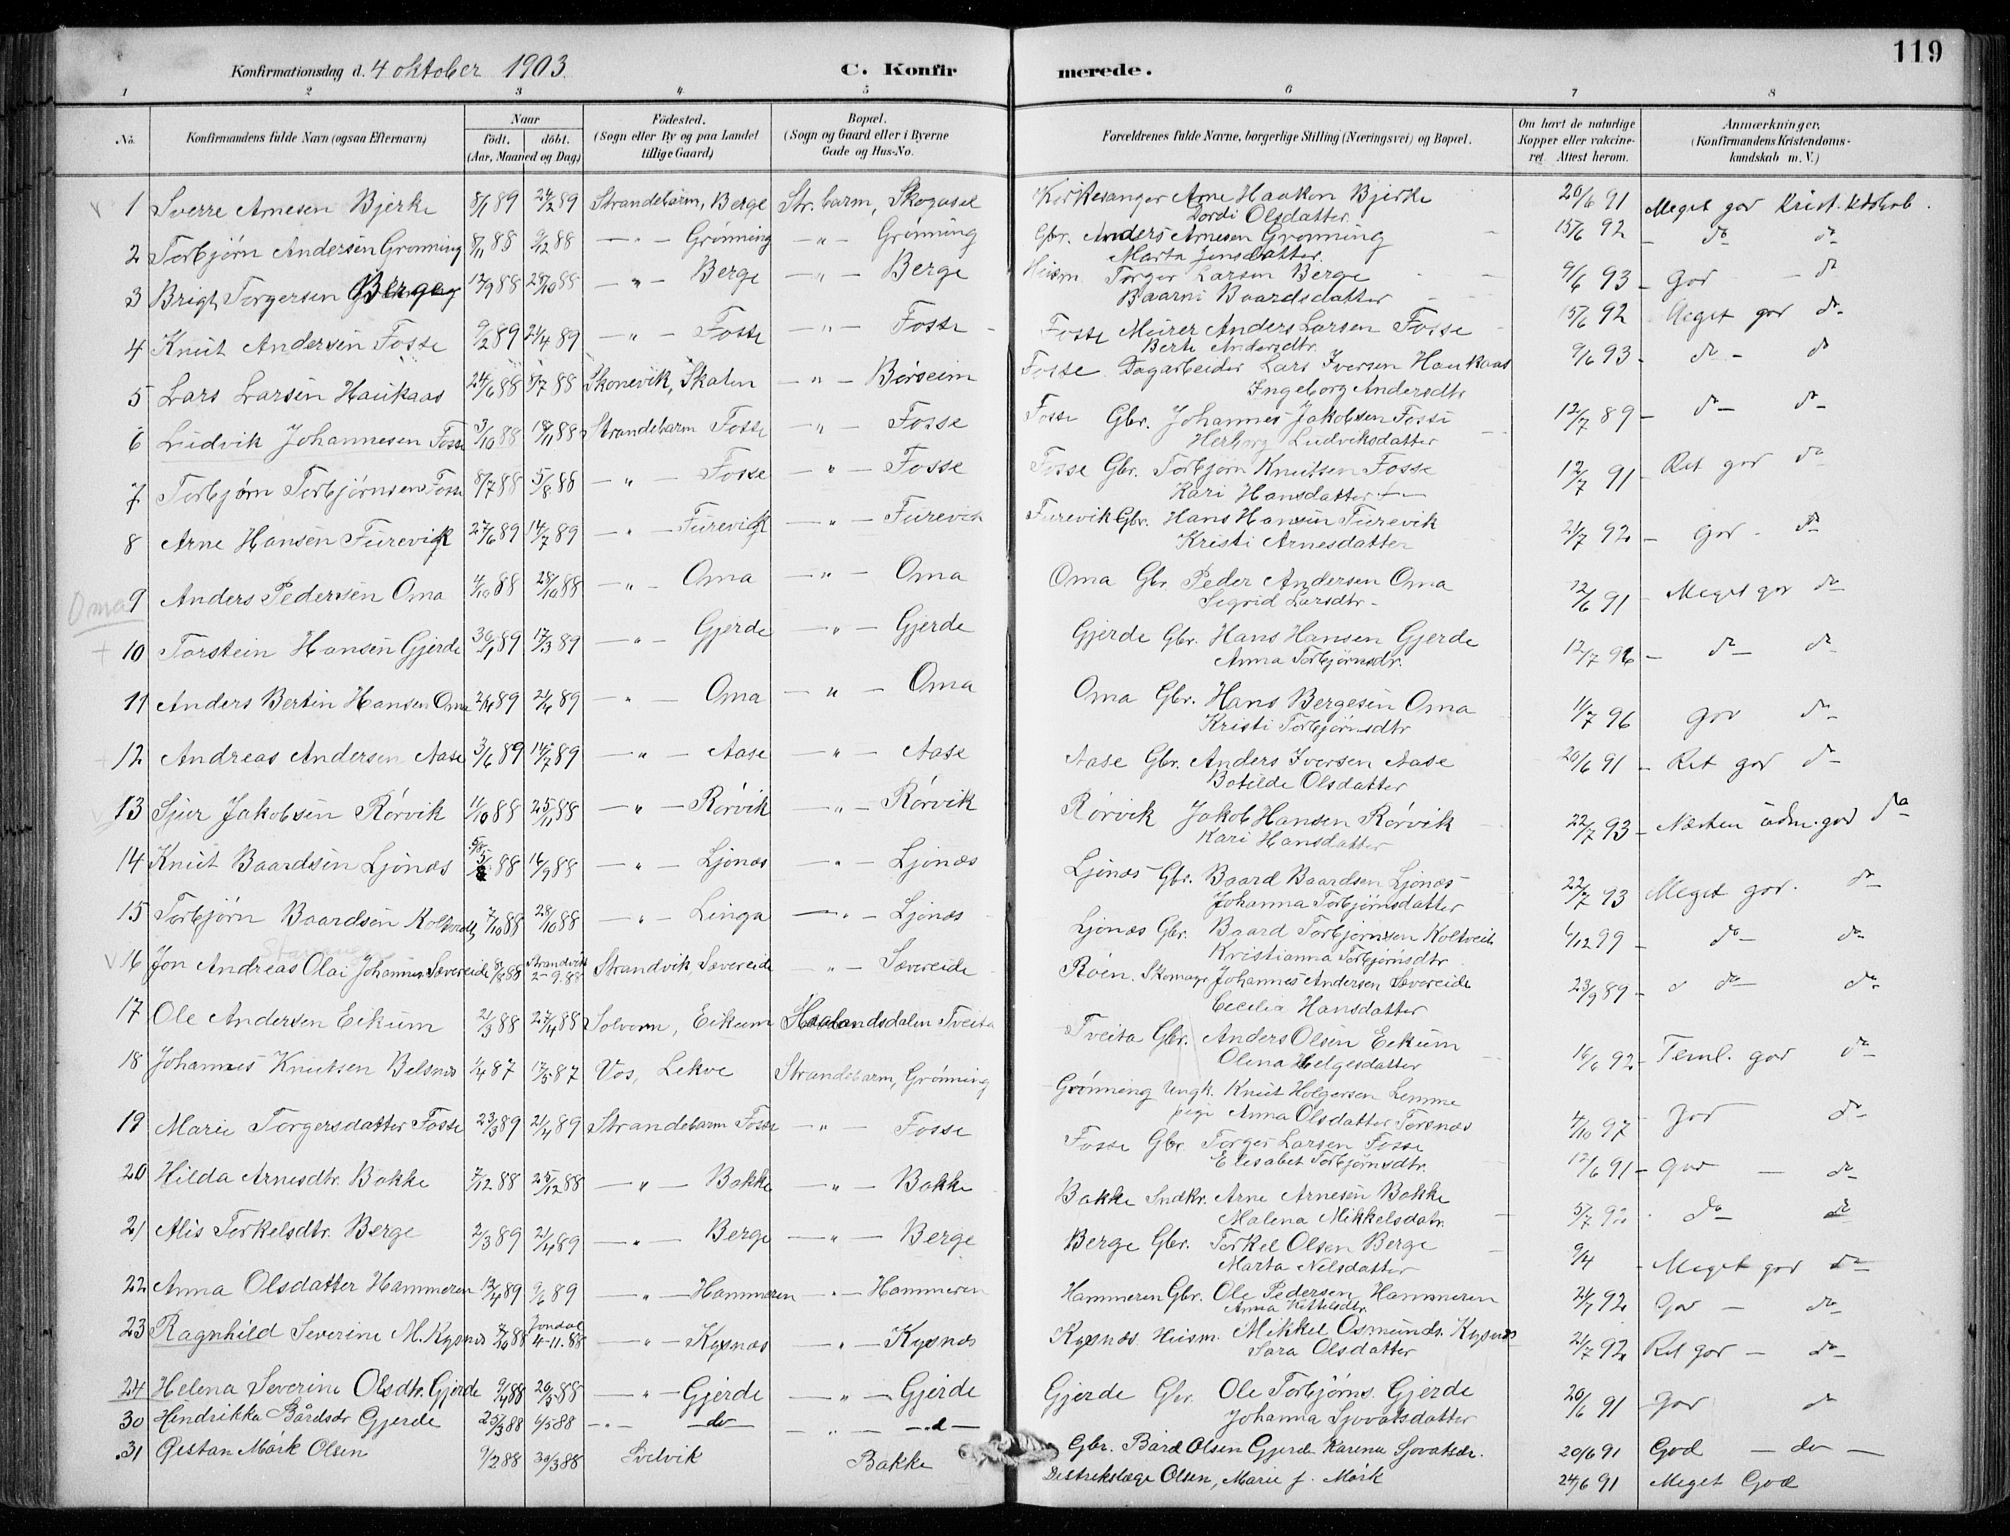 119
Konfirmationsdag d. 4 oktober 1903. C. Konfirmerede.
1 2 3 4 5 6 7 8
No. Konfirmandens fulde Navn (ogsaa Efternavn) Naar födt. döbt. (Aar, Maaned og Dag) Födested. (Sogn eller By og paa Landet tillige Gaard) Bopæl. (Sogn og Gaard eller i Byerne Gade og Hus-No. Forældrenes fulde Navne, borgerlige Stilling (Næringsvei) og Bopæl. Om havt de naturlige Kopper eller vakcineret. Attest herom. Anmærkninger. (Konfirmandens Kristendomskundskab m. V.)
1 Sverre Arnesen Bjerke 8/1 89 24/2 89 Strandebarm, Berge Str.barm, Skogasel Kirkesanger Arne Haakon Bjerke 20/6 91 Meget god Krist. kdskab.
Gordi Olsdatter
2 Torbjørn Andersen Grønning 8/11 88 9/12 88 — " — Grønning — " — Grønning Gbr. Anders Arnesen Grønning 15/6 92 — do do
Marta Jensdatter
3 Brigt Torgersen Berge 12/9 88 28/10 88 — " — Berge — " — Berge Husm Torger Larsen Berge 9/6 93 — God — do
Baarni Baardsdatter
4 Knut Andersen Fosse 9/2 89 21/4 89 — " — Fosse — " — Fosse Fosse Meirer Anders Larsen Fosse 15/6 92 Meget god do
Berte Andersdtr.
5 Lars Larsen Haukaas 24/6 88 8/7 88 Skonevik, Skalen — " — Børseim Fosse Dagarbeider Lars Iversen Haukaas 9/6 93 — do — do
Ingeborg Andersdtr
6 Ludvik Johannesen Fosse 3/10 88 18/11 88 Strandebarm Fosse — " — Fosse Fosse Gbr. Johannes Jakobsen Fosse 12/7 89 — do — do
Herborg Ludviksdatter
7 Torbjørn Torbjørnsen Fosse 8/7 88 5/8 88 — " — Fosse — " — Fosse Fosse Gbr. Torbjørn Knutsen Fosse 12/7 91 — Ret god do
Kari Hansdatter
8 Arne Hansen Furevik 27/6 89 14/7 89 — " — Furevik — " — Furevik Furevik Gbr. Hans Hansen Furevik 21/7 92 — god — do
Kristi Arnesdatter
Oma
9 Anders Pedersen Oma 4/10 88 28/10 88 — " — Oma — " — Oma Oma Gbr. Peder Andersen Oma 12/6 91 — Meget god do
Sigrid Larsdtr.
10 Torstein Hansen Gjerde 30/1 89 17/3 89 — " — Gjerde — " — Gjerde Gjerde Gbr. Hans Hansen Gjerde 12/7 96 — do — do
Anna Torbjørnsdtr.
11 Anders Bertin Hansen Oma 2/4 89 21/4 89 — " — Oma — " — Oma Oma Gbr. Hans Bergesen Oma 11/7 96 god do
Kristi Torbjørnsdtr
12 Andreas Andersen Aase 3/6 89 14/7 89 — " — Aase — " — Aase Aase Gbr. Anders Iversen Aase 20/6 91 — Ret god do
Botilde Olsdatter
13 Sjur Jakobsen Rørvik 11/10 88 25/11 88 — " — Rørvik — " — Rørvik Rørvik Jakob Hansen Rørvik 22/7 93 — Næsten udm. god do
Kari Hansdatter
14 Knut Baardsen Ljønæs 5/8 88 16/9 88 — " — Ljønæs — " — Ljønæs Ljønæs Gbr. Baard Baardsen Ljønæs 22/7 93 Meget god. do
Johanna Torbjørnsdatter
15 Torbjørn Baardsen Koltveidt 7/10 88 28/10 88 — " — Linga — " — Ljønæs Ljønæs Gbr. Baard Torbjørnsen Koltveit 6/12 99 — do — do
Kristianna Torbjørnsdtr
16 Jon Andreas Olai Johannes. Sævereide 8/8 88 Strandvik 2-9.88 Strandvik Sævereide — " — Sævereide Røen. Skomager Johannes Andersen Sævereide 23/9 89 — do — do
Cecilia Hansdatter
17 Ole Andersen Eikum 2/3 88 27/4 88 Solvorn, Eikum Haalandsdalen Tveita Tveita Gbr. Anders Olsen Eikum 16/6 92 — Teml. god do
Olena Helgesdatter
18 Johannes Knutsen Belsnes 1/4 87 17/5 87 Vos, Lekve Strandebarm, Grønning Grønning Ungk. Knut Holgersen Lemme 4/10 97 God do
pige Anna Olsdatter Torsnæs
19 Marie Torgersdatter Fosse 23/3 89 21/4 89 Strandebarm Fosse — " — Fosse Fosse Gbr. Torger Larsen Fosse 12/6 91 — God — do
Elisabet Torbjørnsdtr.
20 Hilda Arnesdtr. Bakke 7/12 88 25/12 88 — " — Bakke — " — Bakke Bakke Sndkr. Arne Arnesen Bakke 5/7 92 do do
Malena Mikkelsdatr.
21 Alis Torkelsdtr. Berge 2/3 89 21/4 89 — " — Berge — " — Berge Berge Gbr. Torkel Olsen Berge 9/4 — Meget god do
Marta Nelsdatter
22 Anna Olsdatter Hammeren 13/4 89 9/6 89 — " — Hammeren — " — Hammeren Hammeren Gbr. Ole Pedersen Hammeren 21/7 92 God — do
Anna Kittelsdtr
23 Ragnhild Severine M. Kysnes 8/10 88 Jondal 4-11.88 — " — Kysnæs — " — Kysnæs Kysnæs Husm. Mikkel Osmunds. Kysnæs 21/7 92 Ret god — do
Sara Olsdatter
24 Helena Severine Olsdtr. Gjerde 9/4 88 20/5 88 — " — Gjerde — " — Gjerde Gjerde Gbr. Ole Torbjørns. Gjerde 20/6 91 God do
Johanna Sjovatsdatter
30 Hendrikka Bårdsdr Gjerde 25/3 88 6/5 88 — " — do — " — d — Gbr. Bård Olsen Gjerde Karena Sjovatsdr. 20/6 91 God — do —
31 Østan Mörk Olsen 9/2 88 30/3 88 Lelvik Bakke Distriktslæge Olsen, Marie f. Mörk 24/6 91 Meget God